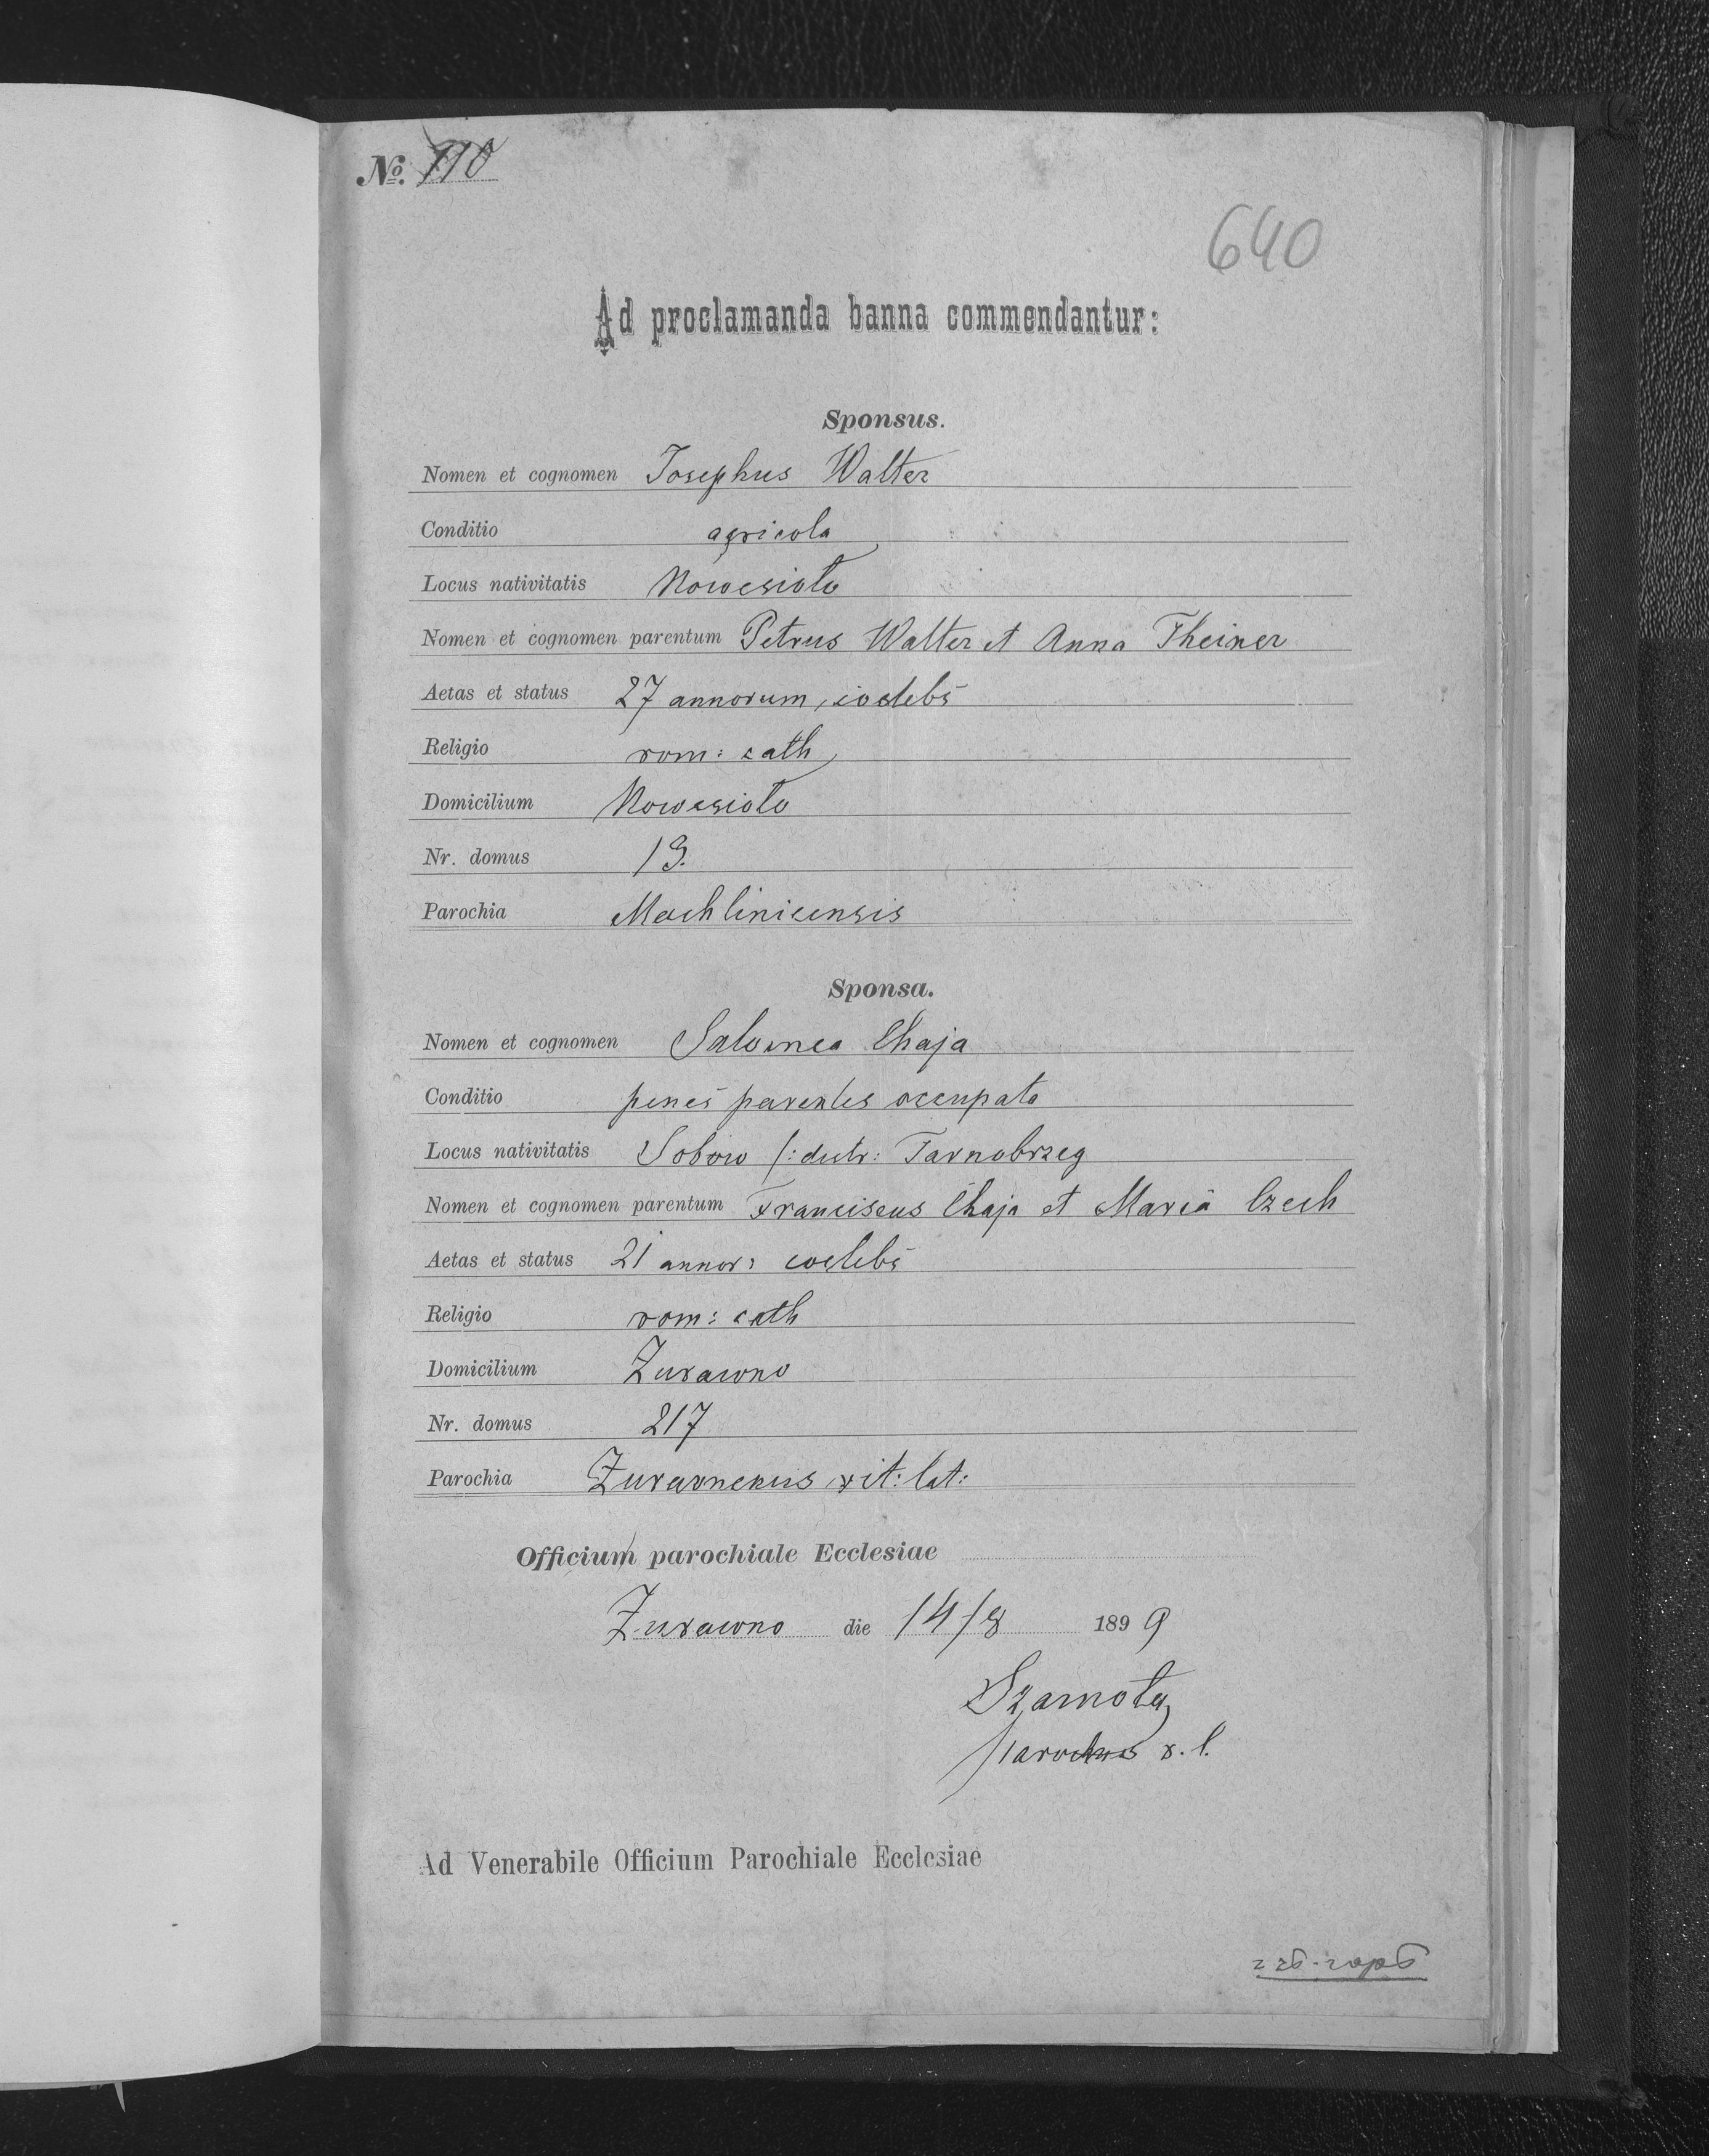 No. 110
640
Ad proclamanda banna commendantur:
Sponsus.
Nomen et cognomen Josephus Walter
Conditio agricola
Locus nativitatis Nowesioło
Nomen et cognomen parentum Petrus Walter et Anna Theiner
Aetas et status 27 annorum, coelebs
Religio rom: cath
Domicilium Nowesioło
Nr. domus 13.
Parochia Machlinicensis
Sponsa.
Nomen et cognomen Salomea Chaja
Conditio penes parentes occupata
Locus nativitatis Sobow /: distr: Tarnobrzeg
Nomen et cognomen parentum Franciscus Chaja et Maria Czech
Aetas et status 21 annor: coelebs
Religio rom: cath
Domicilium Zurawno
Nr. domus 217
Parochia rit: lat:
Officium parochiale Ecclesiae
Zurawno die 14/8 1899
Szamota
parochus r. l.
Ad Venerabile Officium Parochiale Ecclesiae